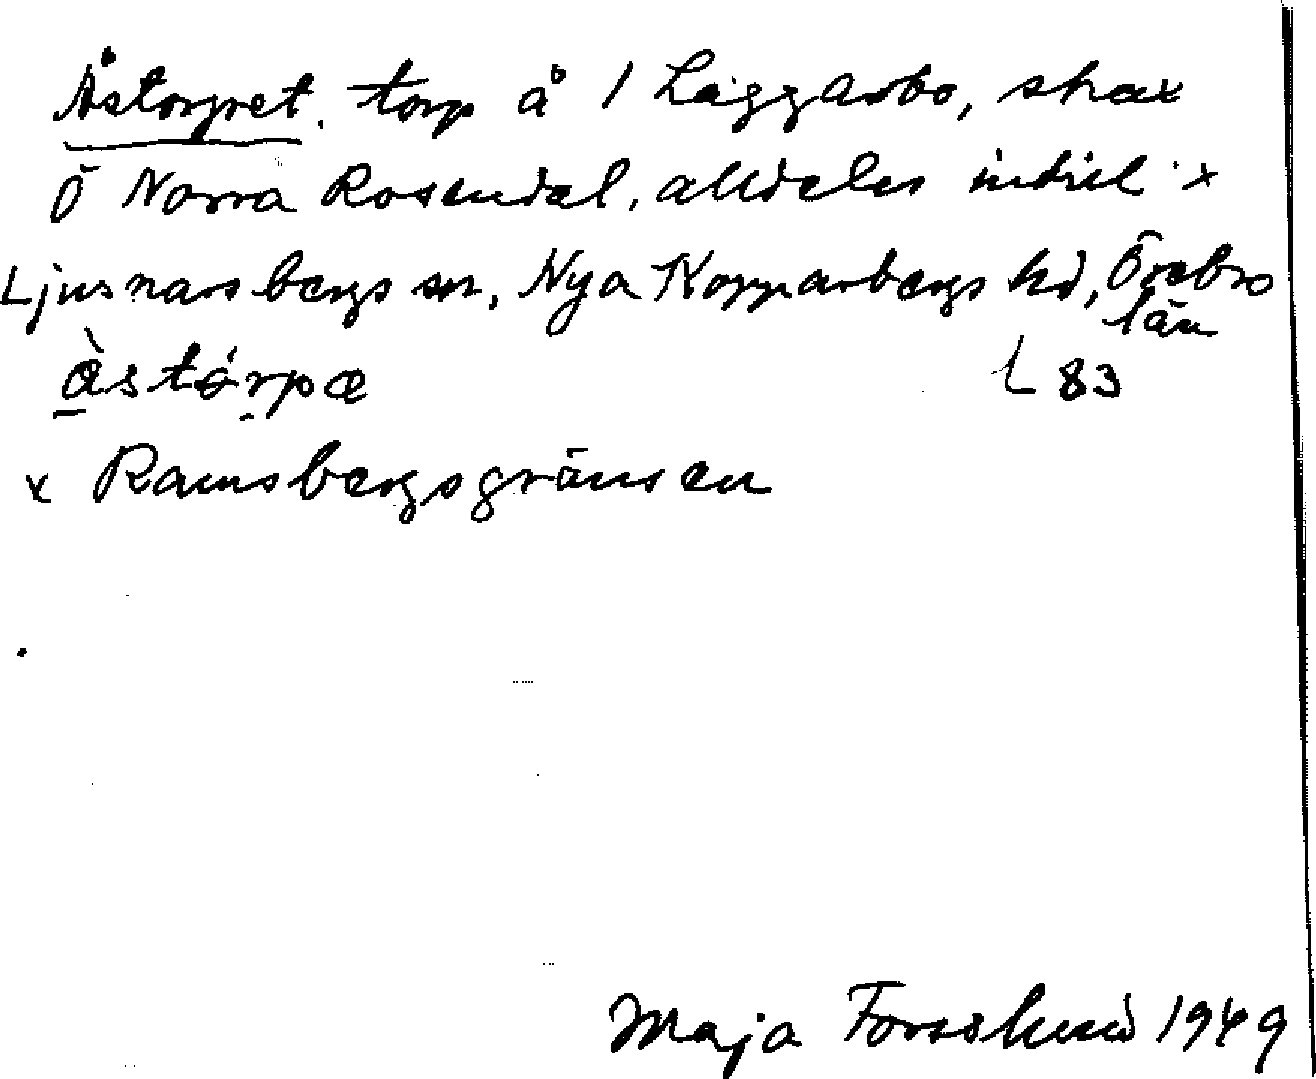 Åstorpet, torp å 1 Läggarbo, strax
Ö Norra Rosendal, alldeles intill x
Ljusnarsbergs sn, Nya Kopparbergs hd, Örebro
län
å̀stórpæ L 83
x Ramsbergsgränsen
Maja Forsslund 1949